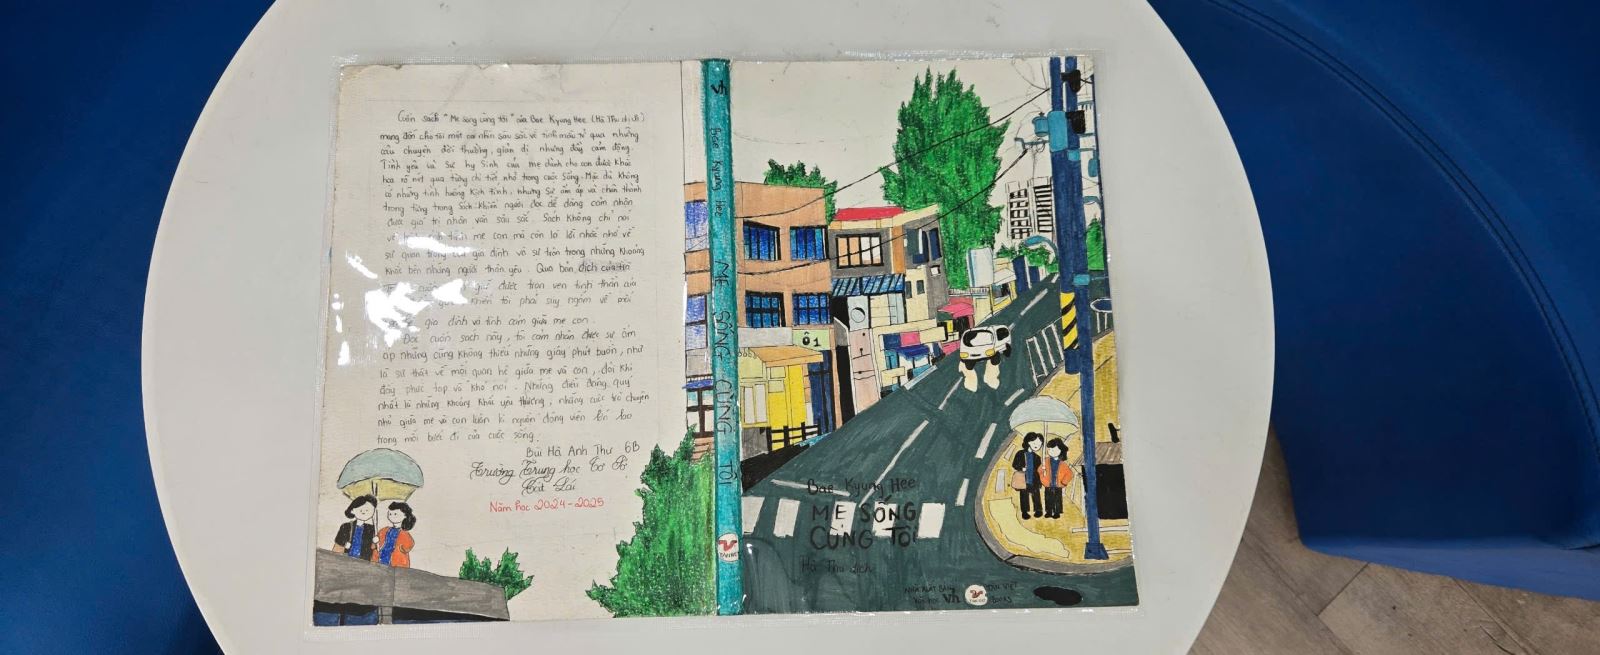 Cuốn sách "Mẹ sống cùng tôi" của Bae Kyung Hee (Hà Thu dịch)
mang đến cho tôi một cái nhìn sâu sắc về tình mẫu tử qua những
câu chuyện đời thường, giản dị nhưng đầy cảm động.
Tình yêu và sự hy sinh của mẹ dành cho con được khắc
họa rõ nét qua từng chi tiết nhỏ trong cuộc sống. Mặc dù không
có những tình huống kịch tính, nhưng sự ấm áp và chân thành
trong từng trang sách khiến người đọc dễ dàng cảm nhận
được giá trị nhân văn sâu sắc. Sách không chỉ nói
về tình mẹ con mà còn là lời nhắc nhở về
sự quan trọng gia đình và sự trân trọng những khoảng
khắc bên những người thân yêu. Qua bản dịch của
giữ được trọn vẹn tinh thần của
khiến tôi phải suy ngẫm về mối
gia đình và tình cảm giữa mẹ con.
Đọc cuốn sách này, tôi cảm nhận được sự ấm
áp nhưng cũng không thiếu những giây phút buồn, như
là sự thật về mối quan hệ giữa mẹ và con, đôi khi
đầy phức tạp và khó nói. Nhưng điều đáng quý
nhất là những khoảng khắc yêu thương, những cuộc trò chuyện
nhỏ giữa mẹ và con luôn là nguồn động viên lớn lao
trong mỗi bước đi của cuộc sống.
Bùi Hà Anh Thư 6B
Trường Trung học Cơ Sở
Cát Lái
Năm học 2024-2025
Bae Kyung Hee MẸ SỐNG CÙNG TÔI
TÂN VIỆT
Ô1
Bae Kyung Hee
MẸ SỐNG
CÙNG TÔI
Hà Thu dịch
NHÀ XUẤT BẢN
VĂN HỌC
Vh
TÂN VIỆT
BOOKS